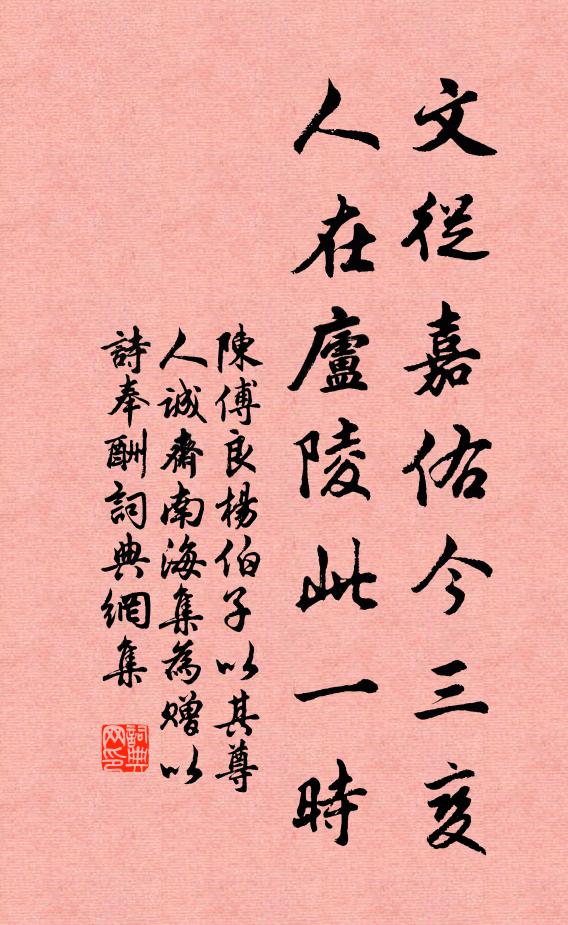 文從嘉佑今三变
人在廬陵此一時
陳傅良楊伯子以其尊
人誠齋南海集為贈以
詩奉酬詞典網集
詞典
网印